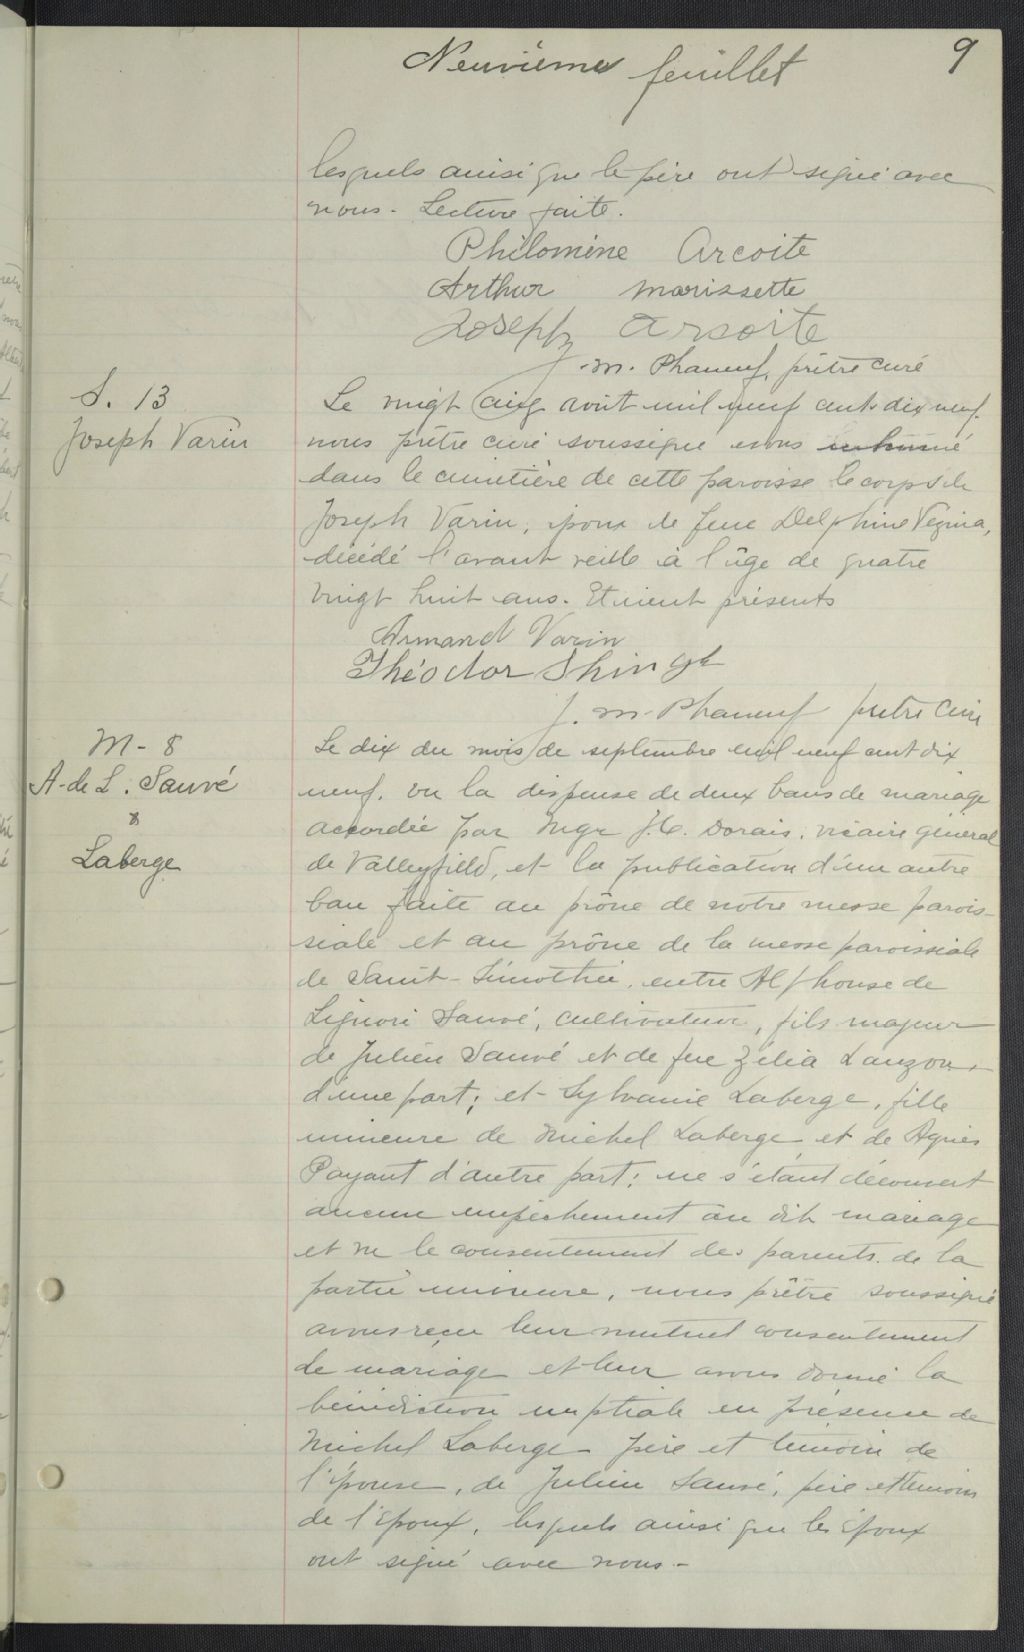 Neuvième feuillet
9
lesquels ainsi que le père ont signé avec
nous. Lecture faite.
Philomène Arcoite
Arthur Marissette
Joseph Arcoite
J. M. Phaneuf, prêtre curé
S. 13
Joseph Varin
Le vingt cinq août mil neuf cent dix neuf.
nous prêtre curé soussigné avons inhumé
dans le cimetière de cette paroisse le corps de
Joseph Varin, époux de feue Delphine Vézina,
décédé l'avant veille à l'âge de quatre
vingt huit ans. Etaient présents
Armand Varin
Théodor
J. M. Phaneuf prêtre curé
M - 8
A. de L. Sauvé
&
Laberge
Le dix du mois de septembre mil neuf cent dix
neuf. vu la dispense de deux bans de mariage
accordée par Mgr J.C. Dorais, vicaire général
de Valleyfield, et la publication d'un autre
ban faite au prône de notre messe parois-
siale et au prône de la messe paroissiale
de Saint-Timothée, entre Alphonse de
Liguori Sauvé, cultivateur, fils majeur
de Julien Sauvé et de feue Zélia Lauzon,
d'une part; et Sylvanie Laberge, fille
mineure de Michel Laberge et de Agnès
Payant d'autre part; ne s'étant découvert
aucun empêchement au dit mariage
et vu le consentement des parents de la
partie mineure, nous prêtre soussigné
avons reçu leur mutuel consentement
de mariage et leur avons donné la
bénédiction nuptiale en présence de
Michel Laberge père et témoin de
l'épouse, de Julien Sauvé, père et témoin
de l'époux, lesquels ainsi que les époux
ont signé avec nous -